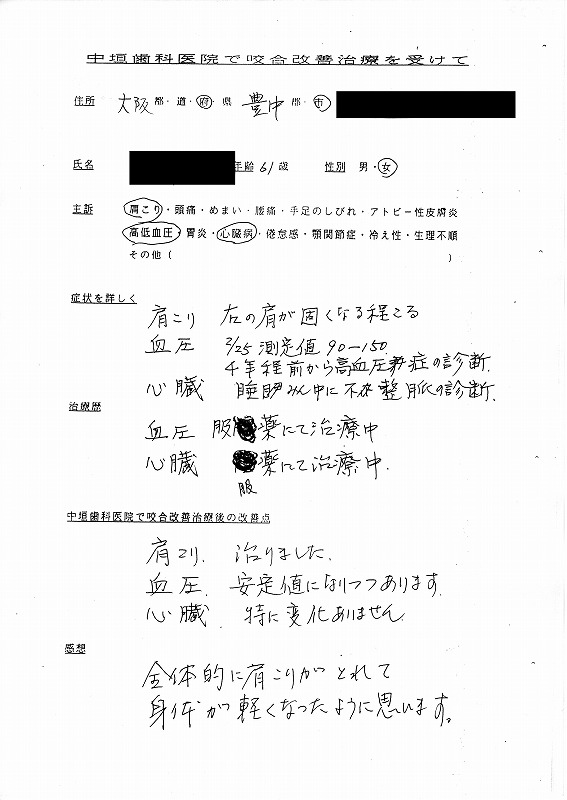 中垣歯科医院で咬合改善治療を受けて
住所 大阪 都・道・府・県 豊中 郡・市
氏名 年齢 61歳 性別 男・女
主訴 肩こり・頭痛・めまい・腰痛・手足のしびれ・アトピー性皮膚炎
高低血圧・胃炎・心臓病・倦怠感・顎関節症・冷え性・生理不順
その他( )
症状を詳しく
肩こり 右の肩が固くなる程こる
血圧 2/25 測定値 90-150
4年程前から高血圧症の診断.
心臓 睡眠中に不整脈の診断.
治療歴
血圧 服薬にて治療中
心臓 服薬にて治療中.
中垣歯科医院で咬合改善治療後の改善点
肩こり. 治りました.
血圧. 安定値になりつつあります.
心臓. 特に変化ありません.
感想
全体的に肩こりがとれて
身体が軽くなったように思います。